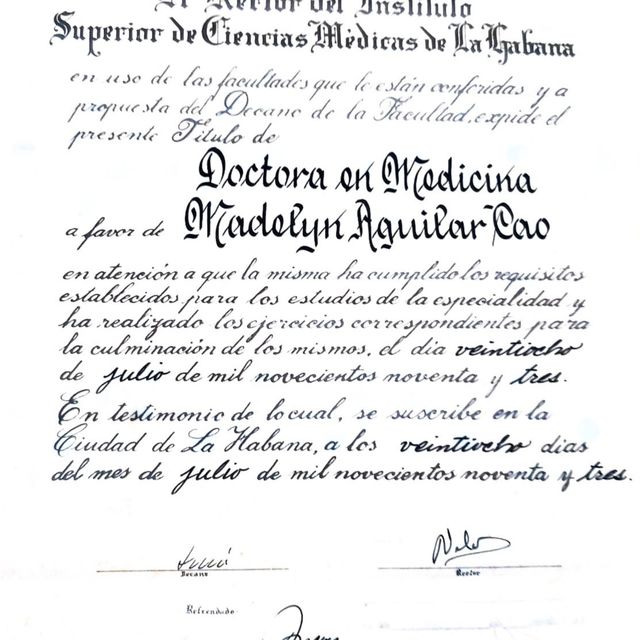 El Rector del Instituto
Superior de Ciencias Médicas de La Habana
en uso de las facultades que le están conferidas y a
propuesta del Decano de la Facultad, expide el
presente Título de
Doctora en Medicina
a favor de Madelyn Aguilar Cao
en atención a que la misma ha cumplido los requisitos
establecidos para los estudios de la especialidad y
ha realizado los ejercicios correspondientes para
la culminación de los mismos, el día veintiocho
de julio de mil novecientos noventa y tres.
En testimonio de lo cual, se suscribe en la
Ciudad de La Habana, a los veintiocho días
del mes de julio de mil novecientos noventa y tres.
Decano
Rector
Refrendado